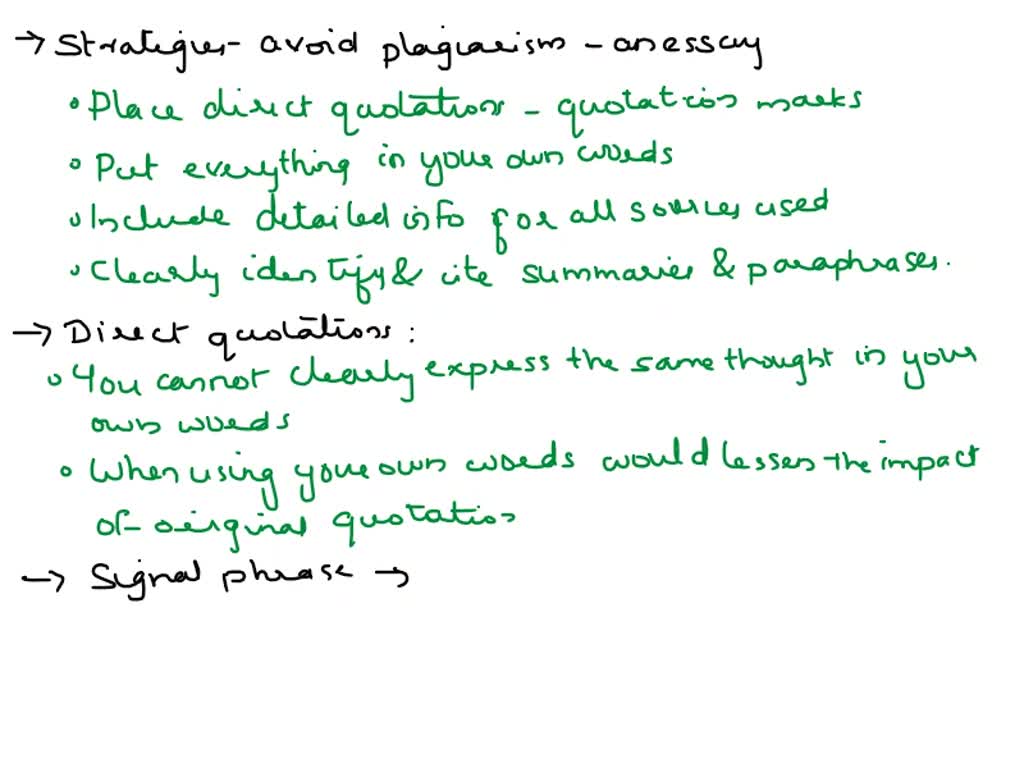 → Strategies - avoid plagiarism - an essay
• Place direct quotations - quotation marks
• Put everything in your own words
• Include detailed info for all sources used
• Clearly identify & cite summaries & paraphrases.
→ Direct quotations :
• You cannot clearly express the same thought in your
own words
• When using your own words would lessen the impact
of original quotation
→ Signal phrase →